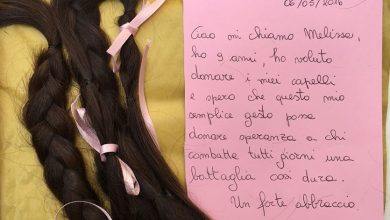 06/05/2016
Ciao mi chiamo Melissa,
ho 9 anni, ho voluto
donare i miei capelli
e spero che questo mio
semplice gesto possa
donare speranza a chi
combatte tutti giorni una
battaglia così dura.
Un forte abbraccio